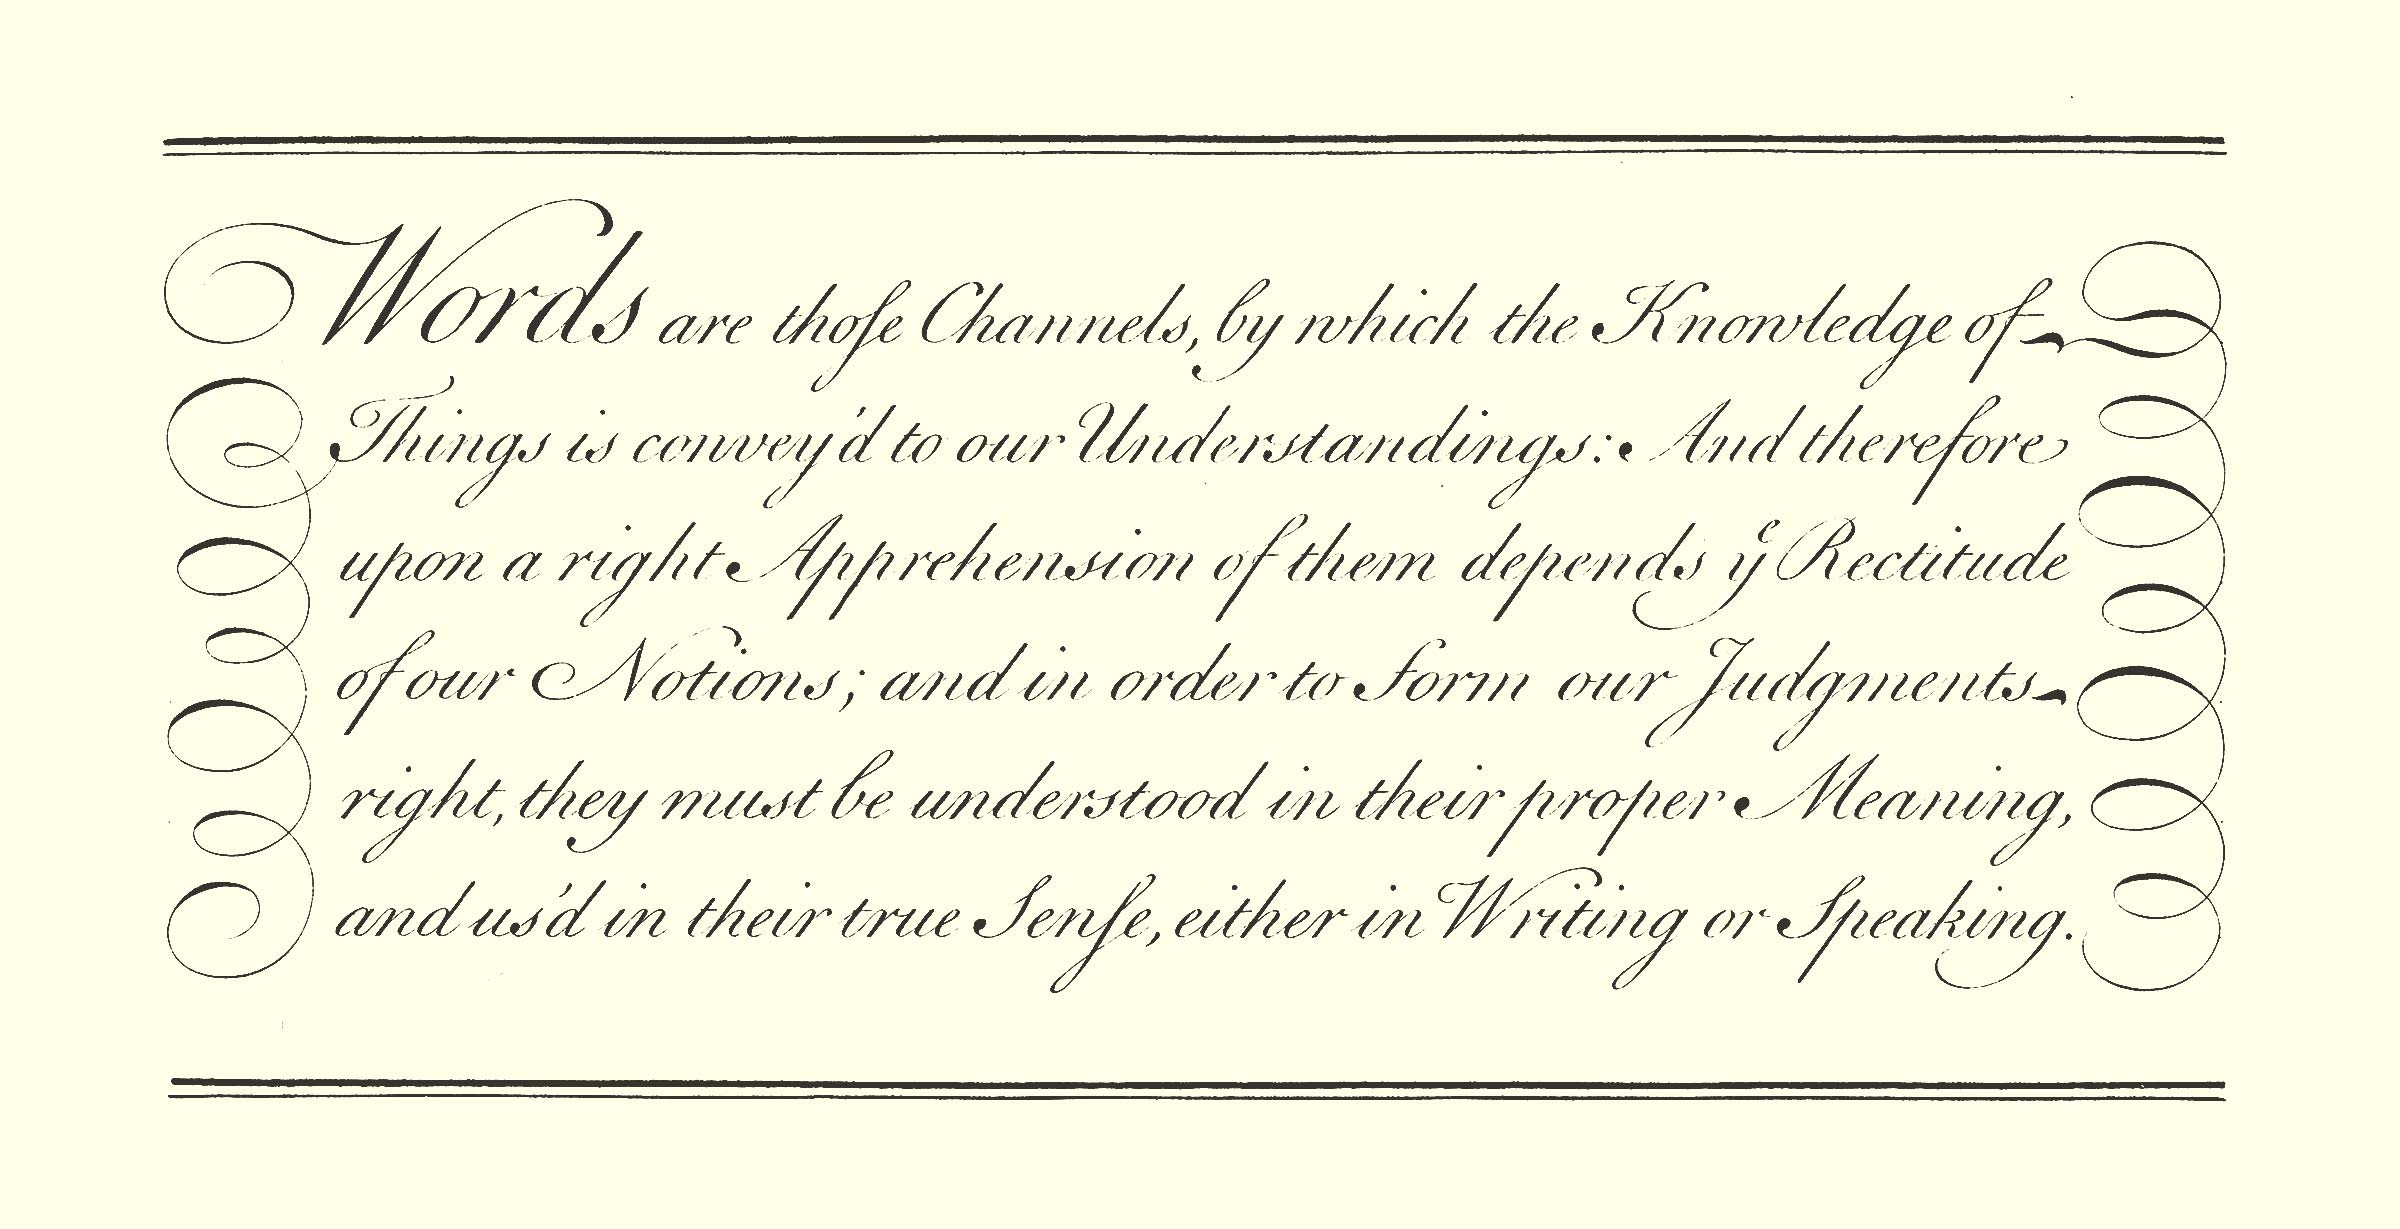 Words are thoſe Channels, by which the Knowledge of
Things is convey'd to our Understandings: And therefore
upon a right Apprehension of them depends yͤ Rectitude
of our Notions; and in order to form our Judgments
right, they must be understood in their proper Meaning,
and us'd in their true Senſe, either in Writing or Speaking.